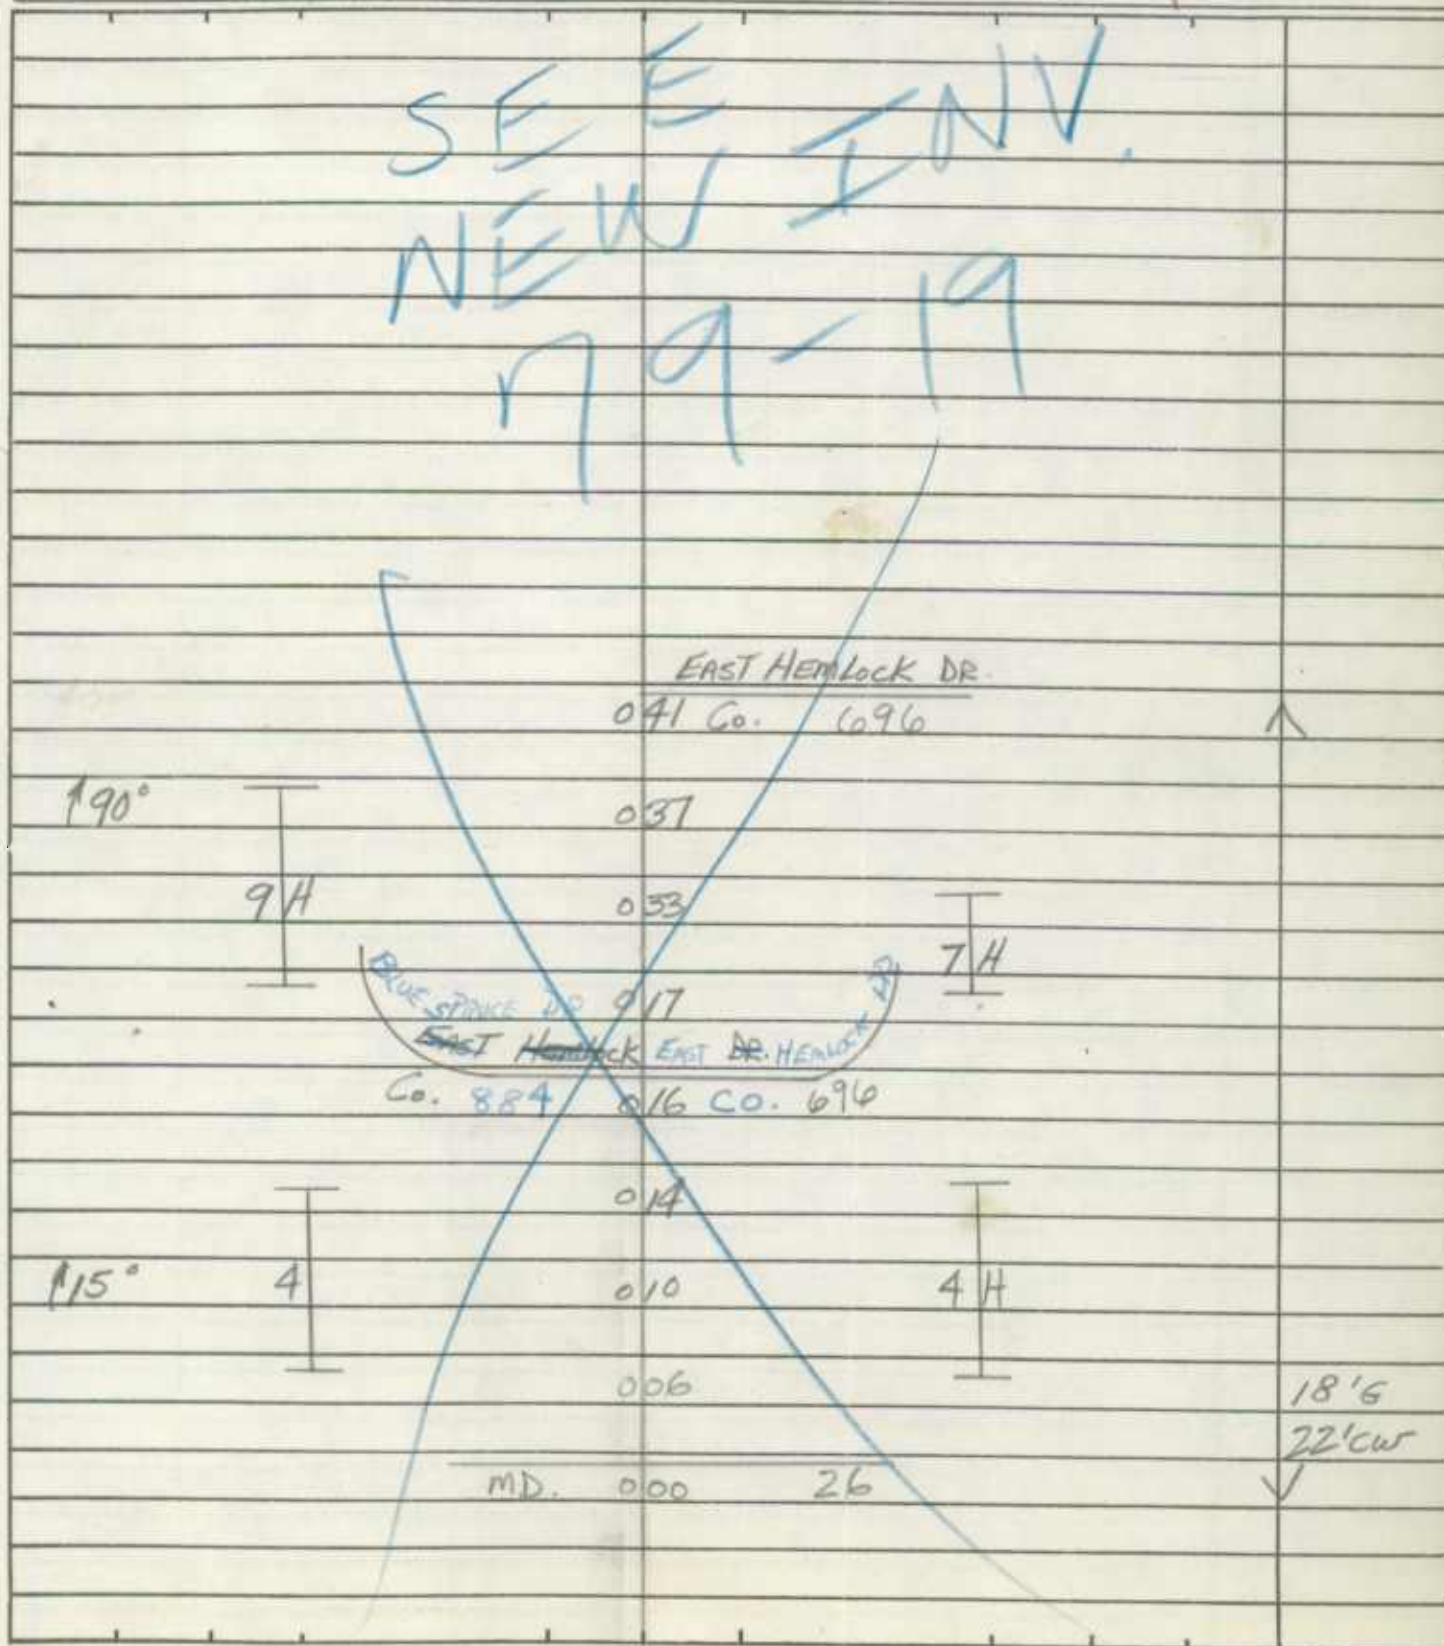 SEE
NEW INV.
79-19
EAST HEMLOCK DR.
041 Co. 696
↑90°
037
9 H
033
7 H
BLUE SPRUCE DR 017
EAST HEMLOCK EAST DR. HEMLOCK DR
Co. 884 016 CO. 696
014
↑15° 4 010 4 H
006
18'G
22'CW
MD. 000 26